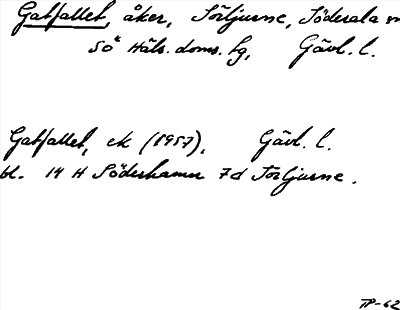 Gatfallet, åker, Sörljusne, Söderala
Sö Häls. doms. hg, Gävl. l.
Gatfallet, ek (1957), Gävl. l.
bl. 14 H Söderhamn 7d Sörljusne.
TP-62